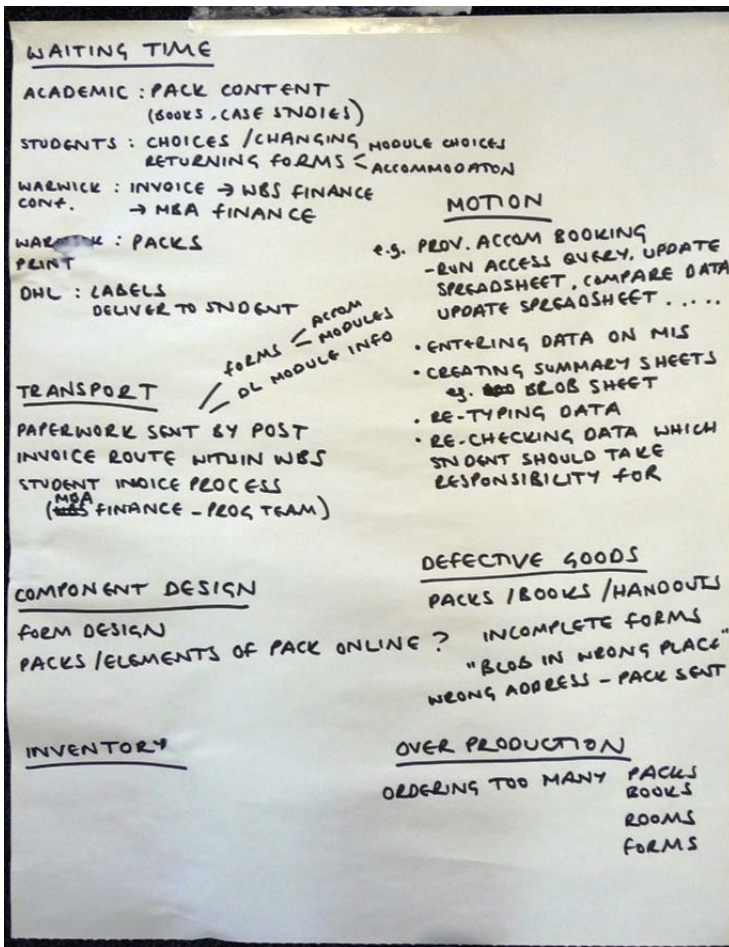 WAITING TIME
ACADEMIC : PACK CONTENT
(BOOKS, CASE STUDIES)
STUDENTS : CHOICES / CHANGING MODULE CHOICES
RETURNING FORMS < ACCOMMODATON
WARWICK : INVOICE → WBS FINANCE
CONF. → MBA FINANCE
WARWICK : PACKS
PRINT
DHL : LABELS
DELIVER TO STUDENT
TRANSPORT
FORMS < ACCOM
MODULES
DL MODULE INFO
PAPERWORK SENT BY POST
INVOICE ROUTE WITHIN WBS
STUDENT INVOICE PROCESS
(MBA FINANCE - PROG TEAM)
COMPONENT DESIGN
FORM DESIGN
PACKS / ELEMENTS OF PACK ONLINE ?
INVENTORY
MOTION
e.g. PROV. ACCOM BOOKING
- RUN ACCESS QUERY, UPDATE
SPREADSHEET, COMPARE DATA
UPDATE SPREADSHEET . . . . .
• ENTERING DATA ON MIS
• CREATING SUMMARY SHEETS
eg. BLOB SHEET
• RE-TYPING DATA
• RE-CHECKING DATA WHICH
STUDENT SHOULD TAKE
RESPONSIBILITY FOR
DEFECTIVE GOODS
PACKS / BOOKS / HANDOUTS
INCOMPLETE FORMS
"BLOB IN WRONG PLACE"
WRONG ADDRESS - PACK SENT
OVER PRODUCTION
ORDERING TOO MANY PACKS
BOOKS
ROOMS
FORMS